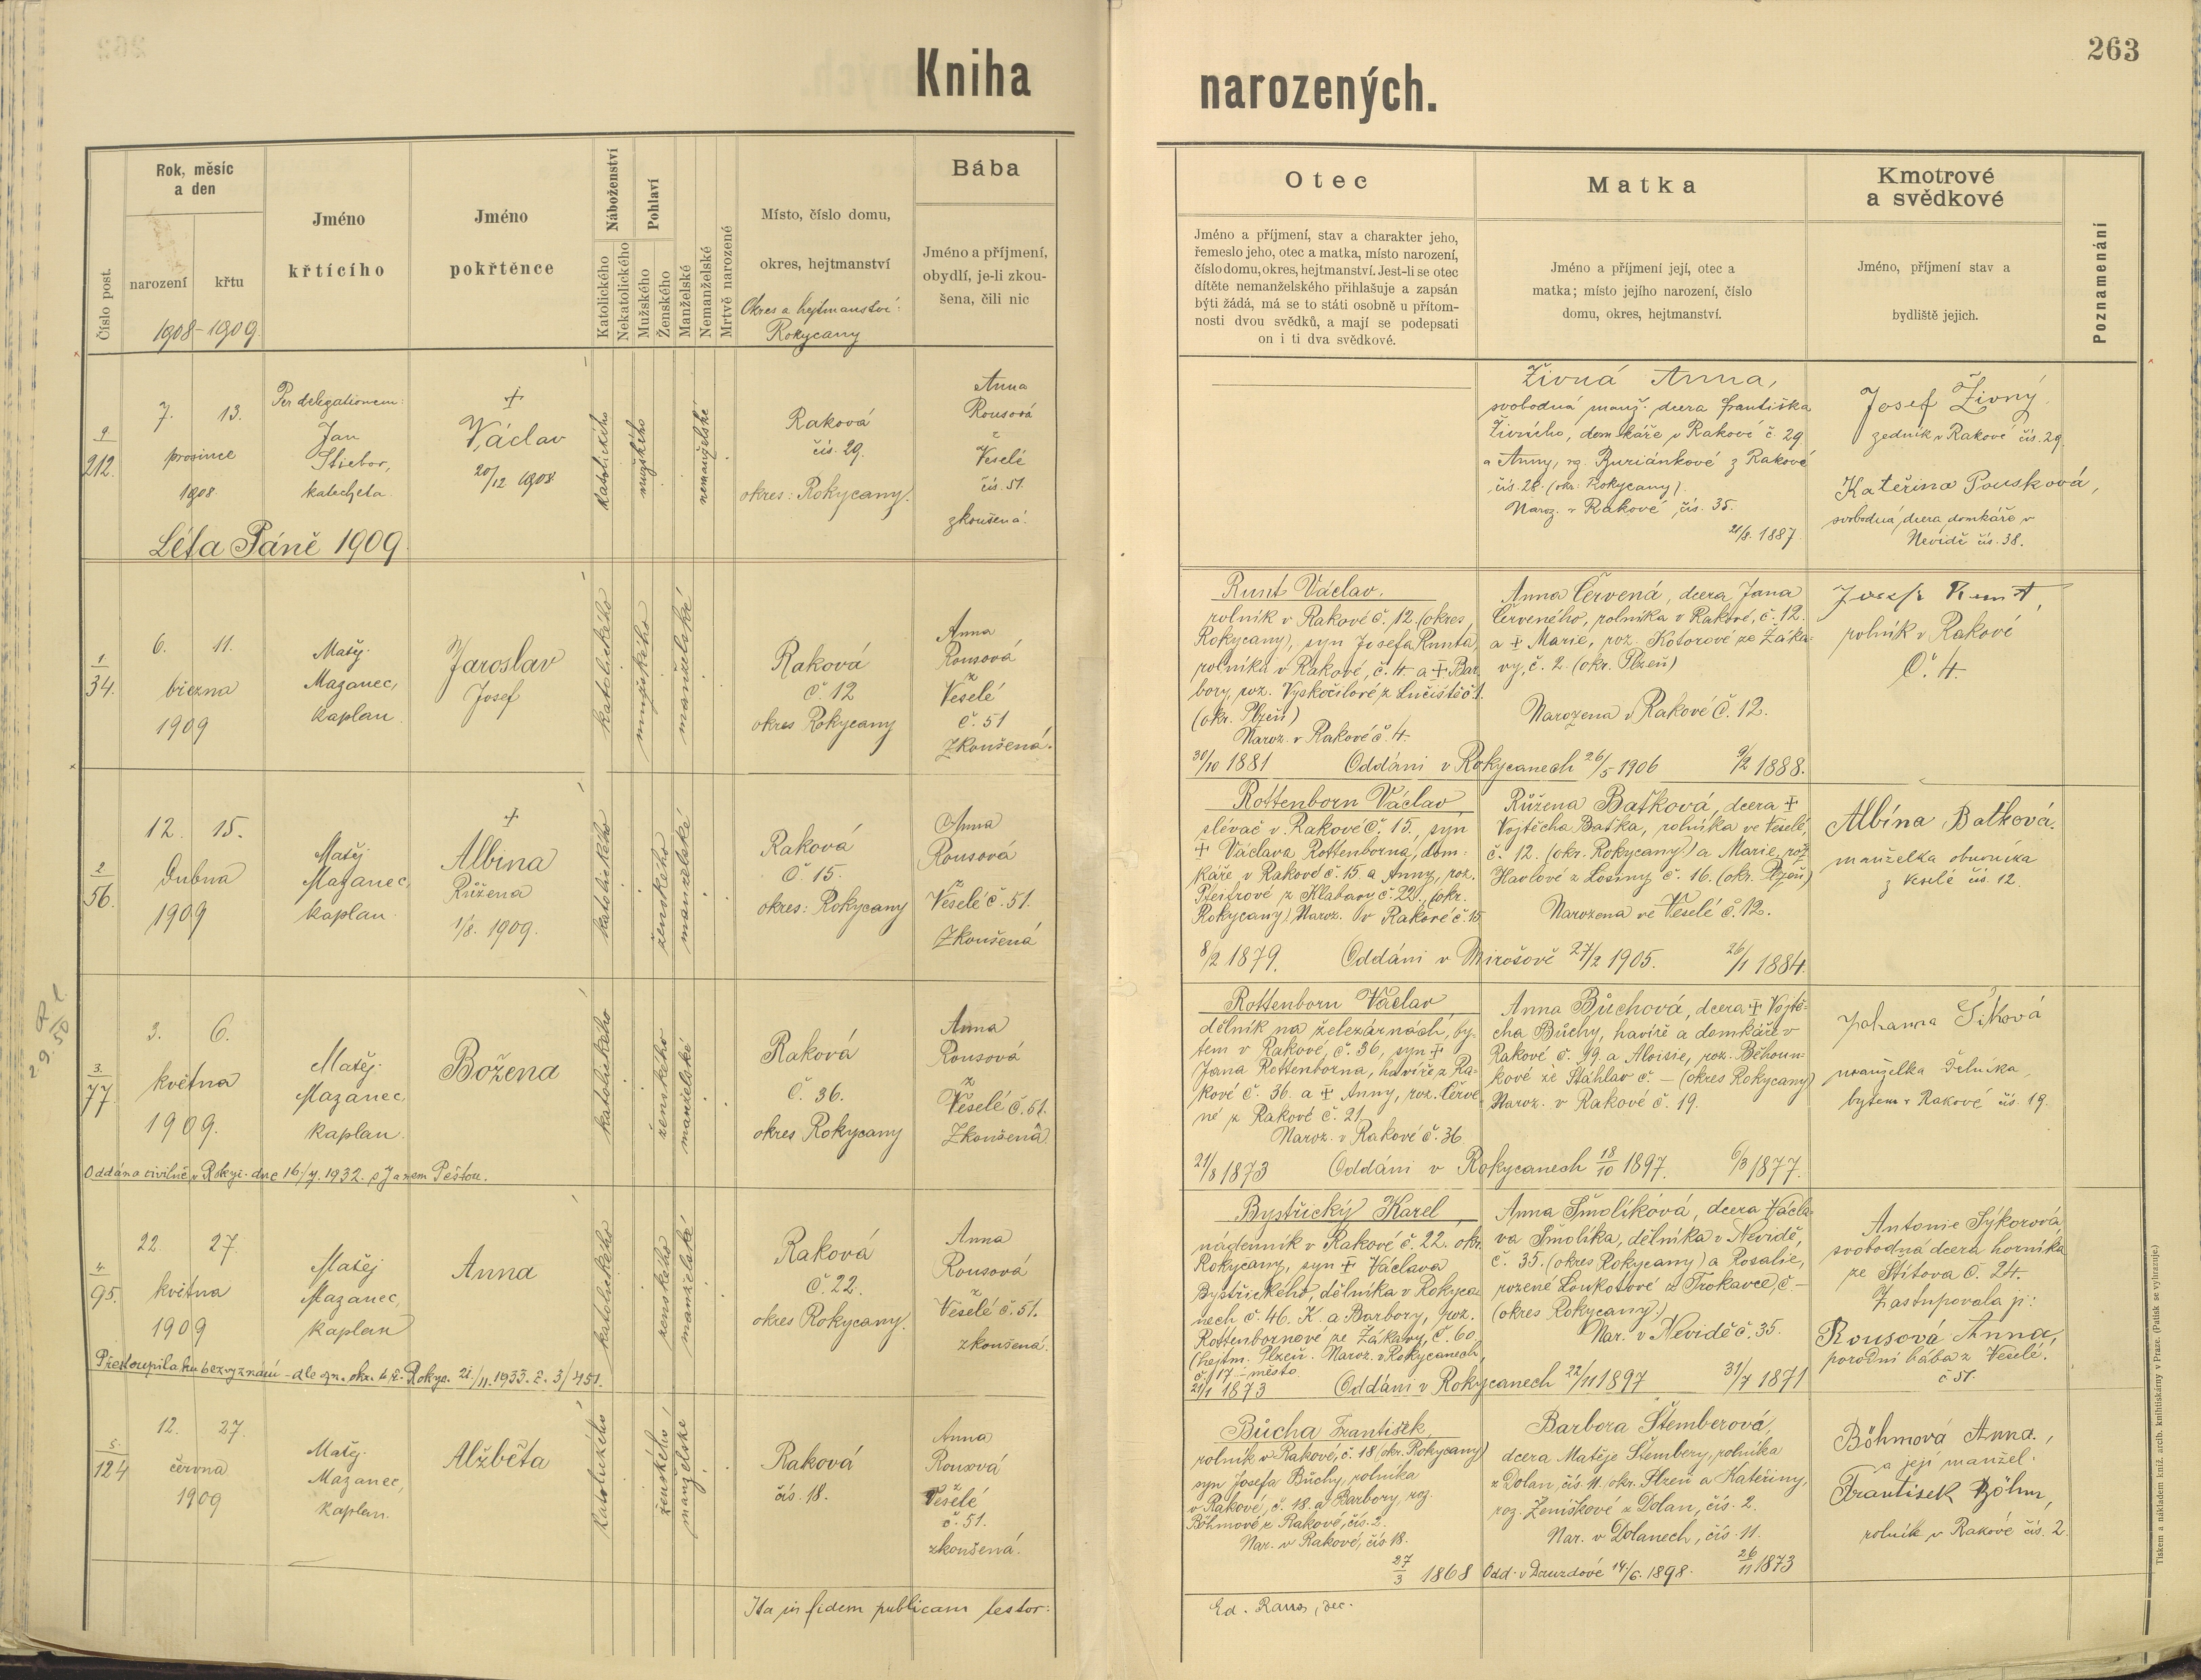 263
Kniha
narozených.
Číslo post.
Rok, měsíc
a den
narození
křtu
1908-1909.
Jméno
křtícího
Jméno
pokřtěnce
Náboženství
Katolického
Nekatolického
Pohlaví
Mužského
Ženského
Manželské
Nemanželské
Mrtvě narozené
Místo, číslo domu,
okres, hejtmanství
Okres a hejtmanství:
Rokycany
Bába
Jméno a příjmení,
obydlí, je-li zkou-
šena, čili nic
Otec
Jméno a příjmení, stav a charakter jeho,
řemeslo jeho, otec a matka, místo narození,
číslo domu, okres, hejtmanství. Jest-li se otec
dítěte nemanželského přihlašuje a zapsán
býti žádá, má se to státi osobně u přítom-
nosti dvou svědků, a mají se podepsati
on i ti dva svědkové.
Matka
Jméno a příjmení její, otec a
matka; místo jejího narození, číslo
domu, okres, hejtmanství.
Kmotrové
a svědkové
Jméno, příjmení stav a
bydliště jejich.
Poznamenání
9
212.
7. 13.
prosince
1908
Per delegationem:
Jan
Stiebor,
katecheta.
+
Václav
20/12 1908
katolického
mužského
nemanželské
Raková
čís. 29.
okres: Rokycany.
Anna
Rousová
z
Veselé
čís. 51.
zkoušená.
Živná Anna,
svobodná manž. dcera Františka
Živného, domkáře v Rakové č. 29
a Anny, rz. Buriánkové z Rakové
čís. 28. (okr. Rokycany).
Naroz. v Rakové, čís. 35.
21/8. 1887.
Josef Živný
zedník v Rakové čís. 29.
Kateřina Pousková,
svobodná dcera domkáře v
Nevidě čís. 38.
Léta Páně 1909.
1.
34.
6. 11.
března
1909
Matěj
Mazanec,
kaplan.
Jaroslav
Josef
katolického
mužského
manželské
Raková
č. 12
okres Rokycany
Anna
Rousová
z
Veselé
č. 51
Zkoušená.
Runt Václav.
rolník v Rakové č. 12 (okres
Rokycany), syn Josefa Runta,
rolníka v Rakové, č. 4 a + Bar-
bory, roz. Vyskočilové z Lučiště č. 1.
(okr. Plzeň)
Naroz. v Rakové č. 4.
30/10 1881 Oddáni v Rokycanech 26/5 1906 9/2 1888.
Anna Červená, dcera Jana
Červeného, rolníka v Rakové, č. 12.
a + Marie, roz. Kotorové ze Žáka-
vy, č. 2. (okr. Plzeň)
Narozena v Rakové č. 12.
Josef Runt,
rolník v Rakové
č. 4.
2
56.
12. 15.
Dubna
1909
Matěj
Mazanec,
kaplan.
+
Albina
Růžena
1/8. 1909.
katolického
ženského
manželské
Raková
č. 15.
okres: Rokycany
Anna
Rousová
z
Veselé č. 51.
Zkoušená
Rottenborn Václav
slévač v Rakové č. 15., syn
+ Václava Rottenborna, dom-
káře v Rakové č. 15 a Anny, roz.
Pfeifrové z Klabavy č. 22., (okr.
Rokycany) Naroz. v Rakové č. 15
8/2 1879. Oddáni v Mirošově 27/2 1905. 26/1 1884.
Růžena Baťková, dcera +
Vojtěcha Baťka, rolníka ve Veselé,
č. 12. (okr. Rokycany) a Marie, roz.
Havlové z Losiny č. 16. (okr. Plzeň)
Narozena ve Veselé č. 12.
Albína Baťková.
manželka obuvníka
z Veselé čís. 12.
2 9. 50
3.
77.
3. 6.
května
1909.
Matěj
Mazanec,
kaplan.
Božena
katolického
ženského
manželské
Raková
č. 36.
okres Rokycany
Anna
Rousová
z
Veselé č. 51.
Zkoušená
Oddána civilně v Rokyc. dne 16/7. 1932. s Janem Peštou.
Rottenborn Václav
dělník na železárnách, by-
tem v Rakové, č. 36, syn +
Jana Rottenborna, havíře z Ra-
kové č. 36. a + Anny, roz. Červe-
né z Rakové č. 21
Naroz. v Rakové č. 36
21/8 1873 Oddáni v Rokycanech 18/10 1897. 6/3 1877.
Anna Bůchová, dcera + Vojtě-
cha Bůchy, havíře a domkáře v
Rakové č. 19. a Aloisie, roz. Běhoun-
kové ze Šťáhlav č. – (okres Rokycany)
Naroz. v Rakové č. 19.
Johanna Šiková
manželka dělníka
bytem v Rakové čís. 19.
4
95.
22. 27.
května
1909
Matěj
Mazanec,
kaplan
Anna
katolického
ženského
manželské
Raková
č. 22.
okres Rokycany.
Anna
Rousová
z
Veselé č. 51.
zkoušená.
Přestoupila ku bezvyznání - dle zn. okr. úř. Rokyc. 21/11. 1933. č. 3/451.
Bystřický Karel
nádenník v Rakové č. 22. okr.
Rokycany, syn + Václava
Bystřického, dělníka v Rokyca-
nech č. 46. K. a Barbory, roz.
Rottenbornové ze Žákavy, č. 60.
(hejtm. Plzeň. Naroz. v Rokycanech,
č. 17 - město
21/1 1873 Oddáni v Rokycanech 22/11 1897 31/7 1871
Anna Smolíková, dcera Václa-
va Smolíka, dělníka v Nevidě,
č. 35. (okres Rokycany) a Rosalie,
rozené Loukotové z Trokavce, č –
(okres Rokycany.)
Nar. v Nevidě č. 35.
Antonie Sýkorová
svobodná dcera horníka
ze Štítova č. 24.
Zastupovala ji:
Rousová Anna,
porodní bába z Veselé.
č 51.
5.
124
12. 27.
června
1909
Matěj
Mazanec,
kaplan.
Alžběta
katolického
ženského
manželské
Raková
čís. 18.
Anna
Rousová
z
Veselé
č. 51.
zkoušená.
Bůcha František,
rolník v Rakové, č. 18 (okr. Rokycany)
syn Josefa Bůchy, rolníka
v Rakové, č. 18. a Barbory, roz.
Böhmové z Rakové, čís. 2.
Nar. v Rakové, čís 18.
27/3 1868 Odd. v Druzdové 14/6. 1898. 26/11 1873
Barbora Štemberová,
dcera Matěje Štembery, rolníka
z Dolan, čís. 11. okr. Plzeň a Kateřiny,
roz. Zemiškové z Dolan, čís. 2.
Nar. v Dolanech, čís. 11.
Böhmová Anna,
a její manžel:
František Böhm,
rolník v Rakové čís. 2.
Ita in fidem publicam testor:
Ed. Raus, dec.
Tiskem a nákladem kníž. arcib. knihtiskárny v Praze. (Patisk se vyhrazuje.)